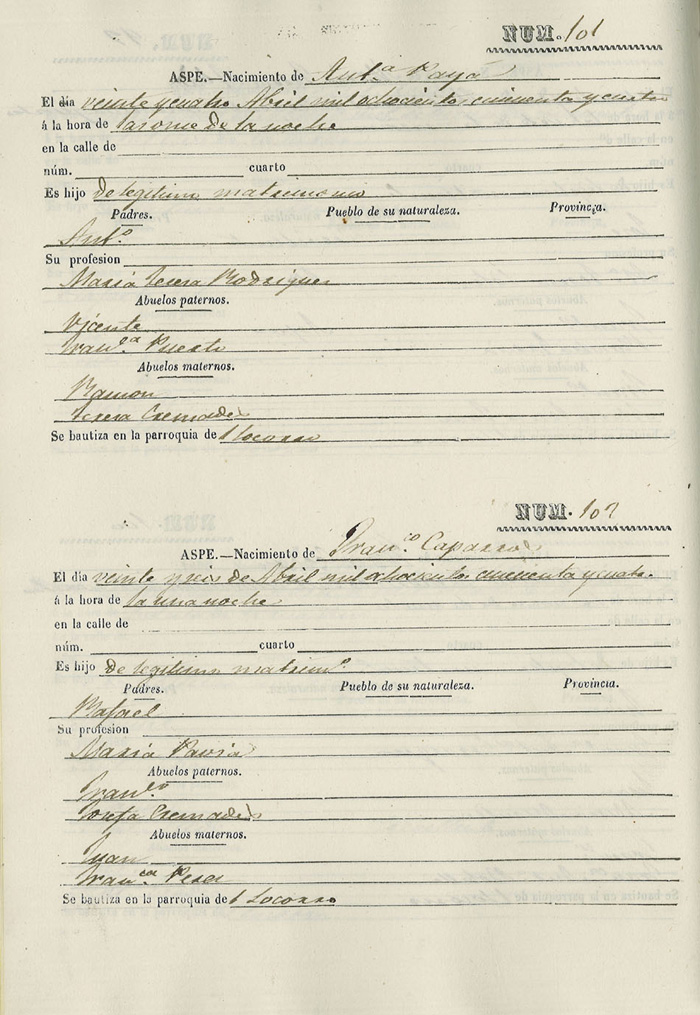 NUM. 101
ASPE.—Nacimiento de Antª Payá
El dia veinte y cuatro Abril mil ochociento cincuenta y cuatro
á la hora de las once de la noche
en la calle de
núm. cuarto
Es hijo de legitimo matrimonio
Padres. Pueblo de su naturaleza. Provincia.
Antº
Su profesion
Maria Teresa Rodriguez
Abuelos paternos.
Vicente
Franca Puerto
Abuelos maternos.
Ramon
Teresa Cremades
Se bautiza en la parroquia de l Socorro
NUM. 102
ASPE.—Nacimiento de Franco Caparros
El dia veinte y seis de Abril mil ochociento cincuenta y cuatro
á la hora de la una noche
en la calle de
núm. cuarto
Es hijo de legitimo matrimº
Padres. Pueblo de su naturaleza. Provincia.
Rafael
Su profesion
Maria Pavia
Abuelos paternos.
Franco
Josefa Cremades
Abuelos maternos.
Juan
Franca Perez
Se bautiza en la parroquia de l Socorro